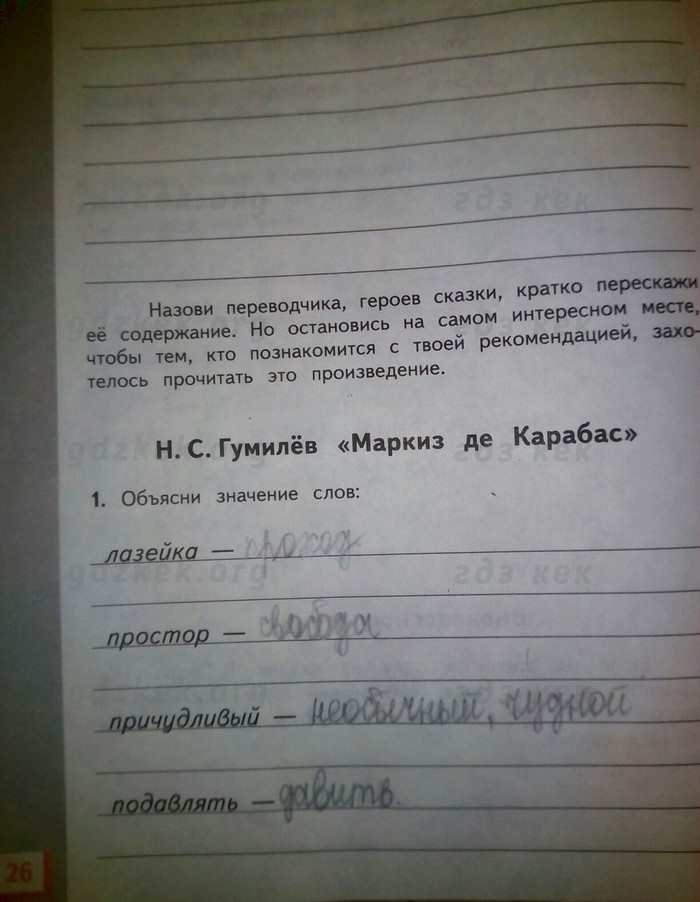 гдз кек
gdzkek.org гдз кек
Назови переводчика, героев сказки, кратко перескажи
её содержание. Но остановись на самом интересном месте,
чтобы тем, кто познакомится с твоей рекомендацией, захо-
телось прочитать это произведение.
Н. С. Гумилёв «Маркиз де Карабас»
1. Объясни значение слов:
лазейка — проход
gdzkek.org гдз кек
простор — свобода
причудливый — необычный, чудной
подавлять — давить.
26